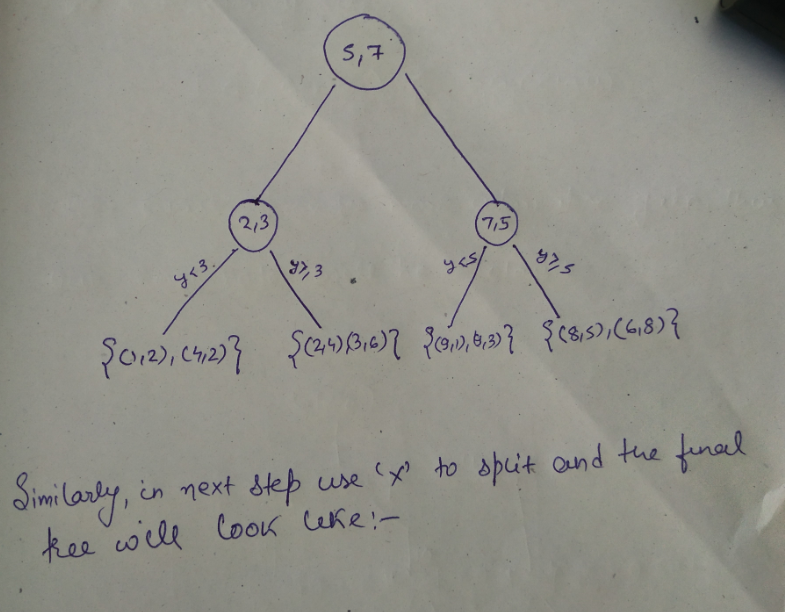 5,7
2,3 7,5
y<3 y≥3 y<5 y≥5
{(1,2), (4,2)} {(2,4)(3,6)} {(9,1), ,3)} {(8,5), (6,8)}
Similarly, in next step use 'x' to split and the final
tree will look like:-